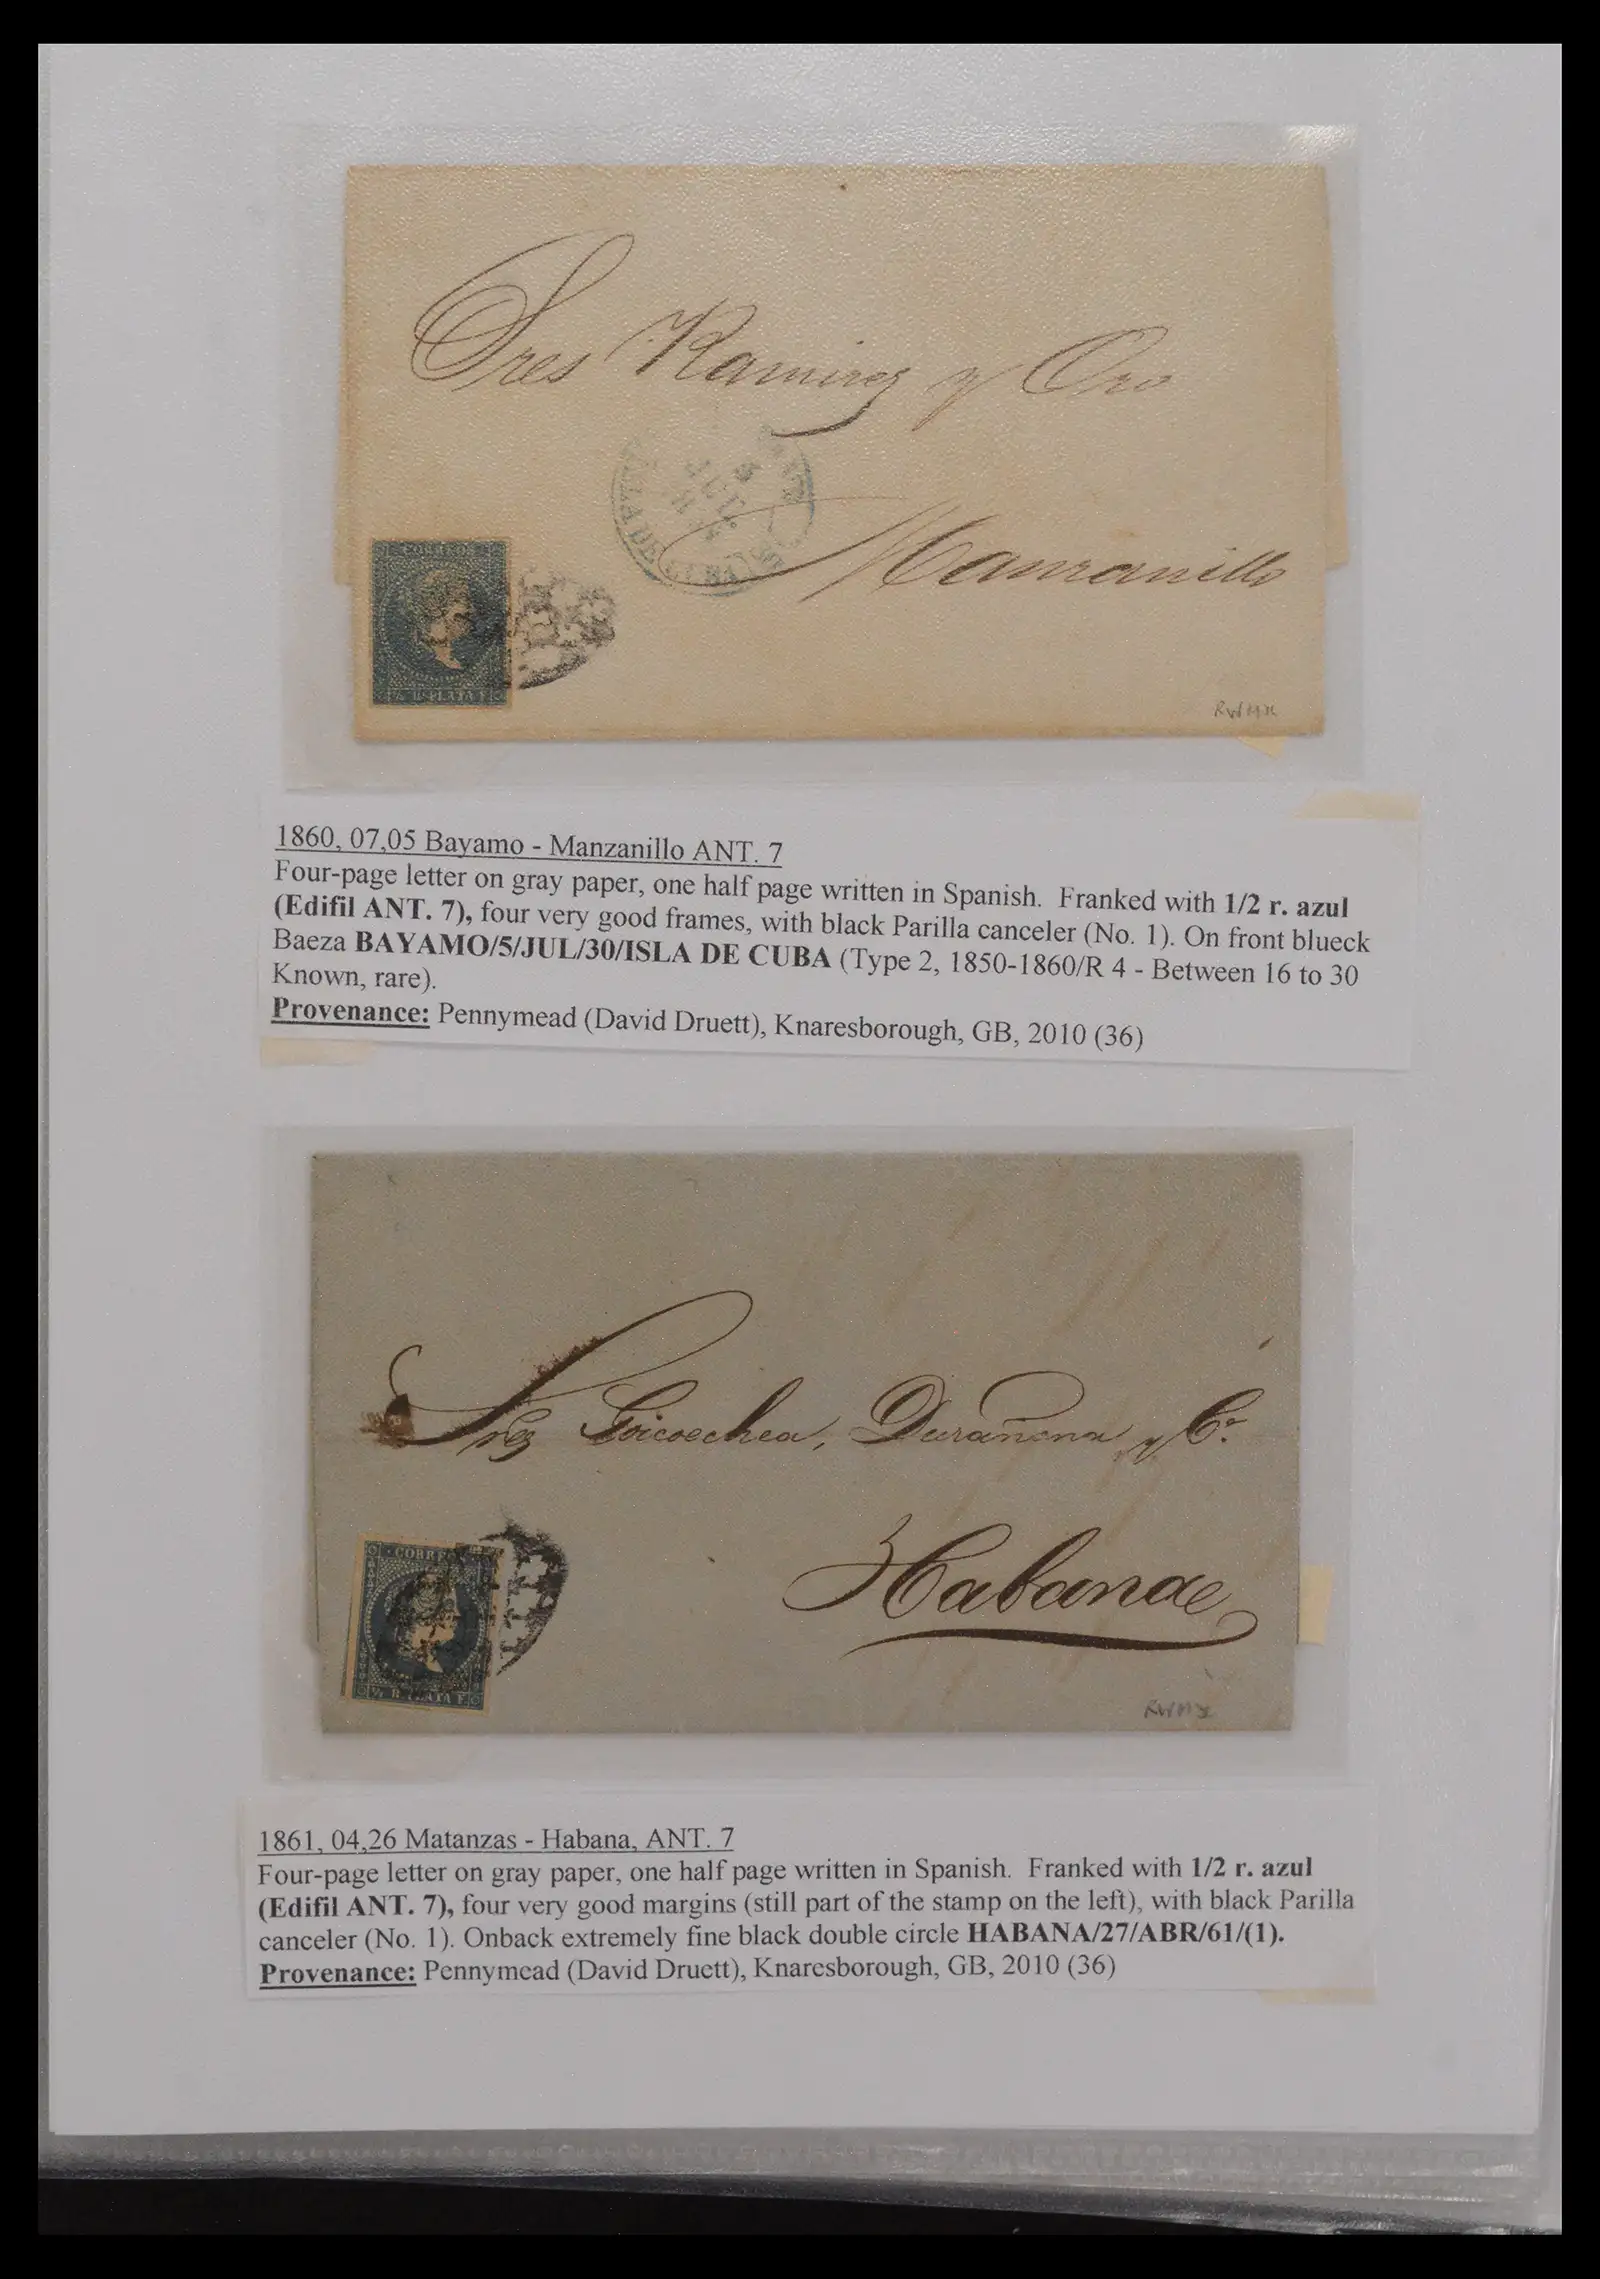 Sres Ramirez y Oro
Manzanillo
CORREOS
PLATA F
RWHM
1860, 07,05 Bayamo - Manzanillo ANT. 7
Four-page letter on gray paper, one half page written in Spanish. Franked with 1/2 r. azul
(Edifil ANT. 7), four very good frames, with black Parilla canceler (No. 1). On front blueck
Baeza BAYAMO/5/JUL/30/ISLA DE CUBA (Type 2, 1850-1860/R 4 - Between 16 to 30
Known, rare).
Provenance: Pennymead (David Druett), Knaresborough, GB, 2010 (36)
Srez Goicoechea, Durañona y Cª.
Habana
CORREOS
½ R. PLATA F.
1861, 04,26 Matanzas - Habana, ANT. 7
Four-page letter on gray paper, one half page written in Spanish. Franked with 1/2 r. azul
(Edifil ANT. 7), four very good margins (still part of the stamp on the left), with black Parilla
canceler (No. 1). Onback extremely fine black double circle HABANA/27/ABR/61/(1).
Provenance: Pennymead (David Druett), Knaresborough, GB, 2010 (36)